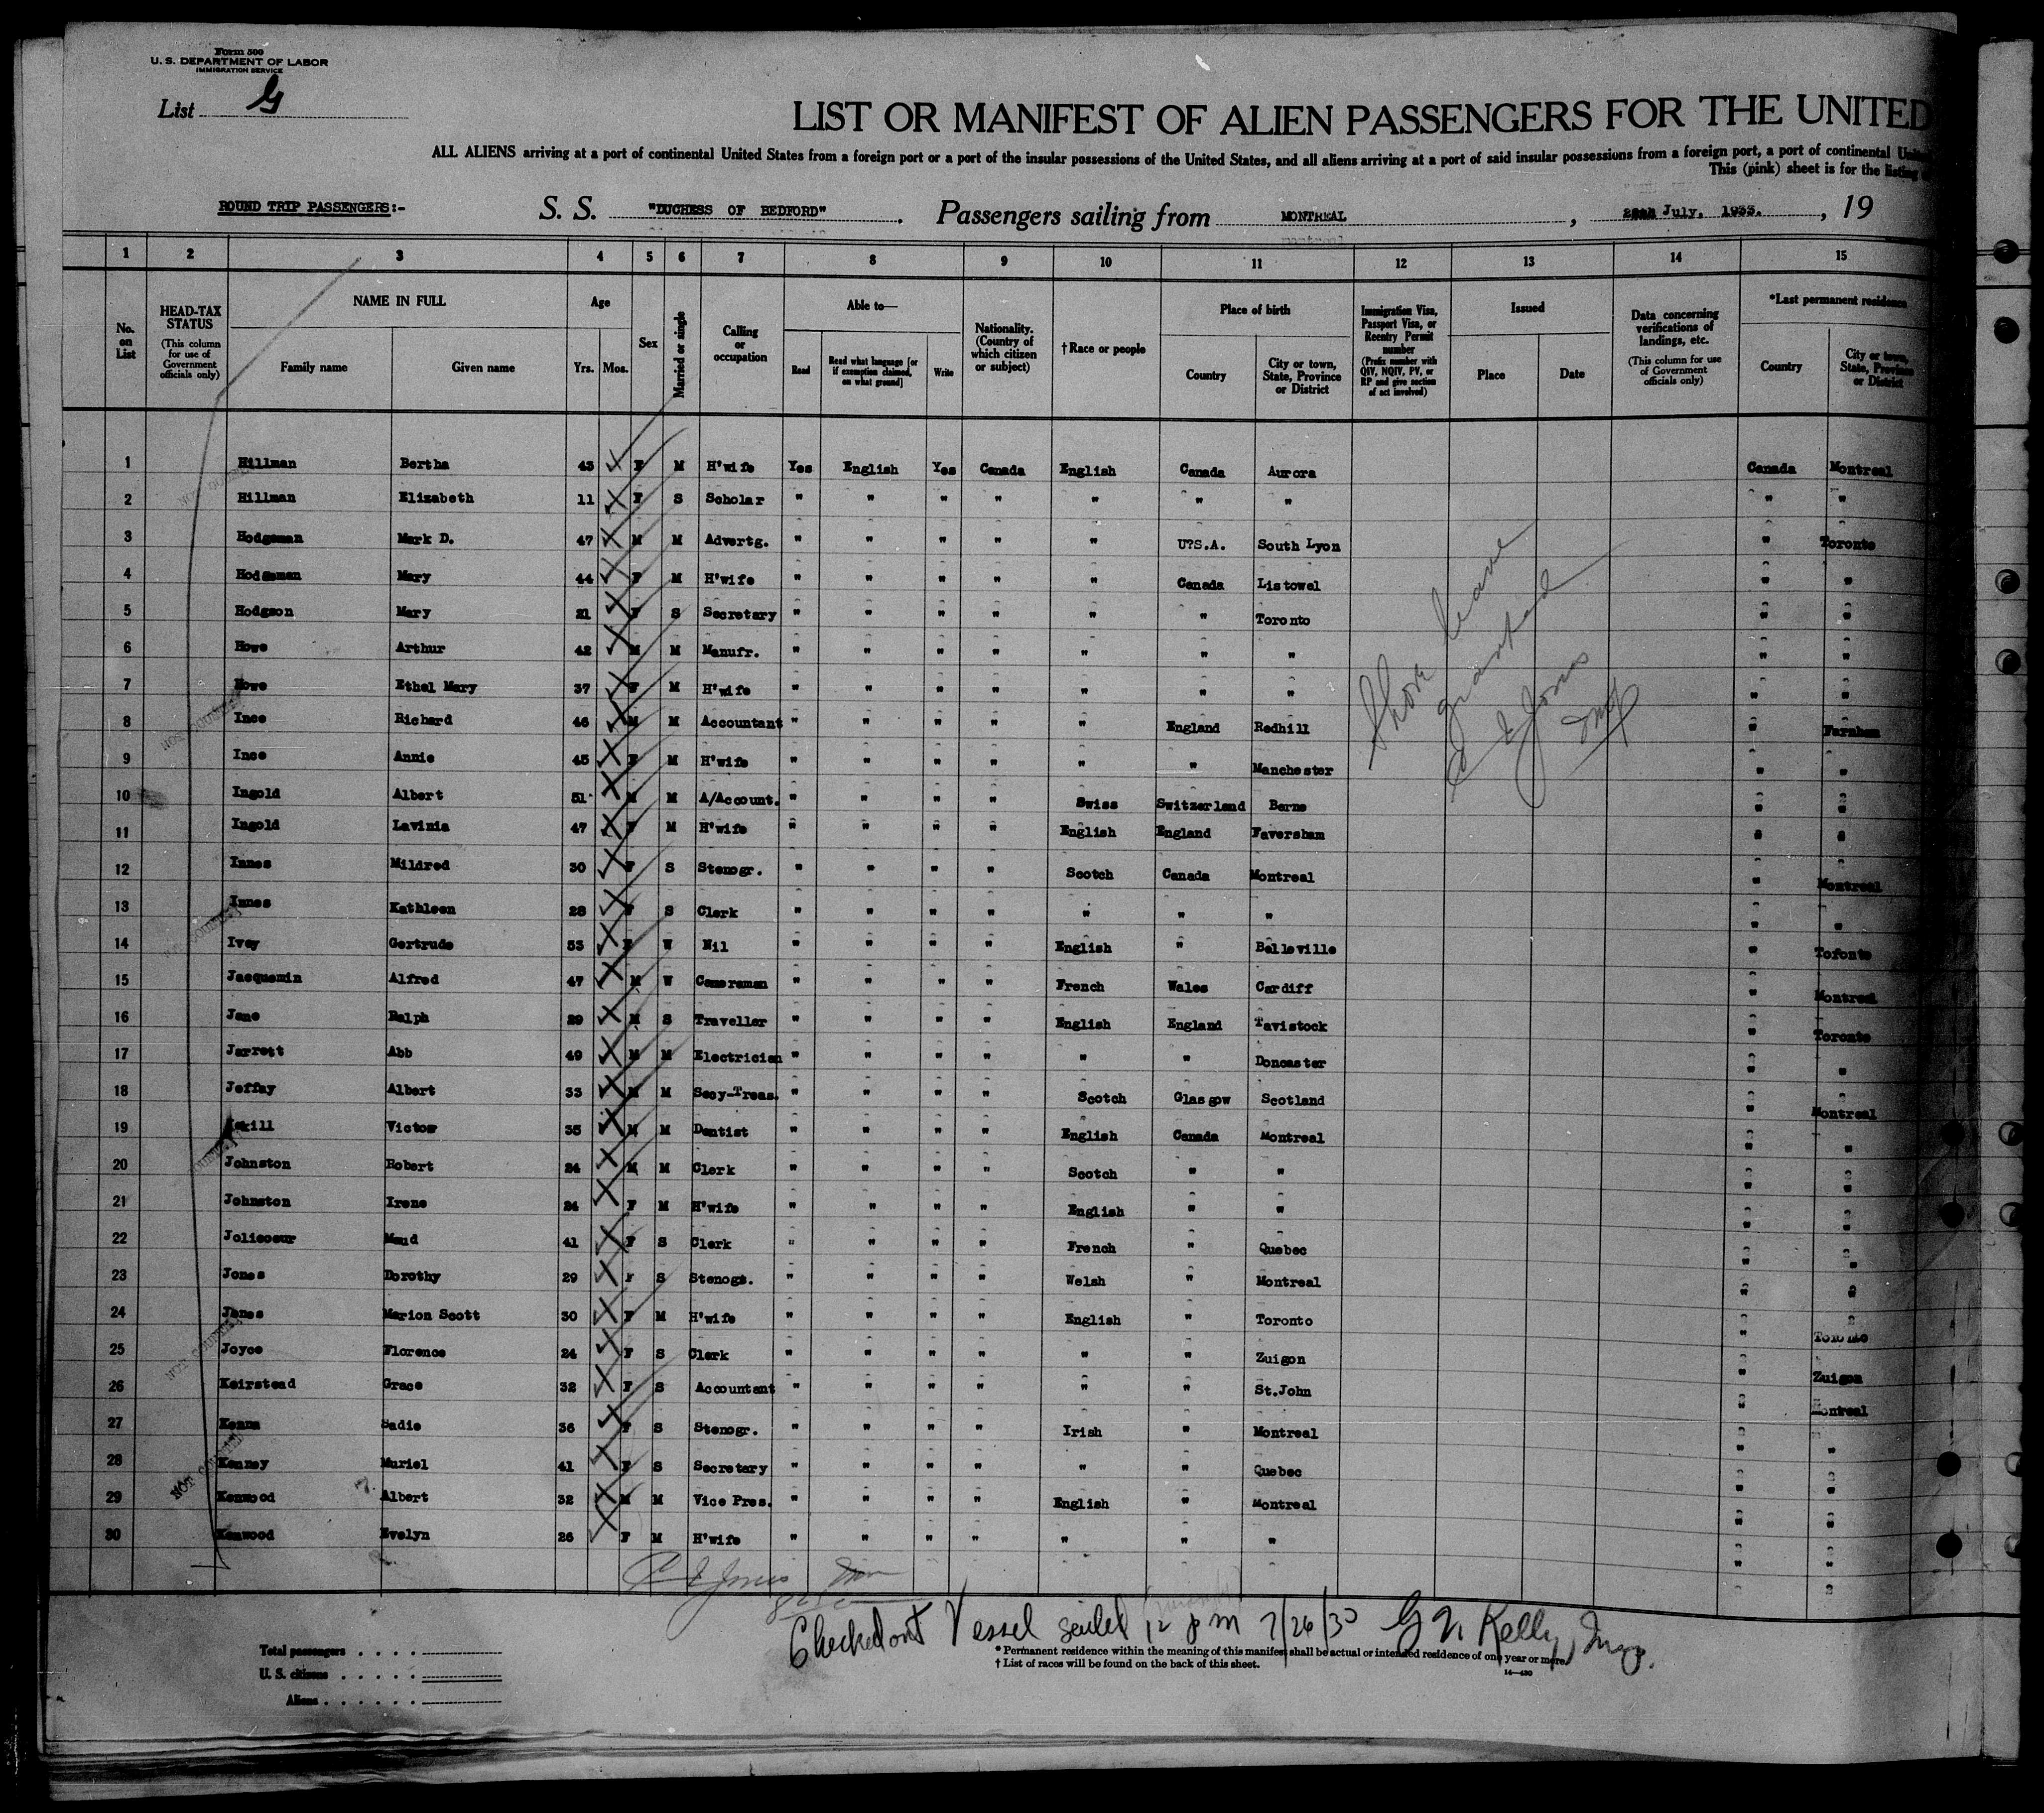 Form 500
U. S. DEPARTMENT OF LABOR
IMMIGRATION SERVICE
List G
LIST OR MANIFEST OF ALIEN PASSENGERS FOR THE UNITED
ALL ALIENS arriving at a port of continental United States from a foreign port or a port of the insular possessions of the United States, and all aliens arriving at a port of said insular possessions from a foreign port, a port of continental
This (pink) sheet is for the listing
ROUND TRIP PASSENGERS:- S. S. "DUCHESS OF BEDFORD". Passengers sailing from MONTREAL, July, 1933., 19
1 2 3 4 5 6 7 8 9 10 11 12 13 14 15
No. on List
HEAD-TAX STATUS (This column for use of Government officials only)
NAME IN FULL Family name Given name
Age Yrs. Mos.
Sex
Married or single
Calling or occupation
Able to— Read Read what language [or if exemption claimed, on what ground] Write
Nationality. (Country of which citizen or subject)
†Race or people
Place of birth Country City or town, State, Province or District
Immigration Visa, Passport Visa, or Reentry Permit number (Prefix number with QIV, NQIV, PV, or RP and give section of act involved)
Issued Place Date
Data concerning verifications of landings, etc. (This column for use of Government officials only)
*Last permanent residence Country City or town, State, Province or District
1 Hillman Bertha 43 F M H'wife Yes English Yes Canada English Canada Aurora Canada Montreal
2 Hillman Elizabeth 11 F S Scholar " " " " " " " " "
3 Hodgeman Mark D. 47 M M Advertg. " " " " " U?S.A. South Lyon " Toronto
4 Hodgeman Mary 44 F M H'wife " " " " " Canada Listowel " "
5 Hodgson Mary 21 F S Secretary " " " " " " Toronto " "
6 Howe Arthur 42 M M Manufr. " " " " " " " " "
7 Howe Ethel Mary 37 F M H'wife " " " " " " " " "
8 Ince Richard 46 M M Accountant " " " " " England Redhill " Farnham
9 Ince Annie 45 F M H'wife " " " " " " Manchester " "
10 Ingold Albert 51 M M A/Account. " " " " Swiss Switzerland Berne " "
11 Ingold Lavinia 47 F M H'wife " " " " English England Faversham " "
12 Innes Mildred 30 F S Stenogr. " " " " Scotch Canada Montreal " Montreal
13 Innes Kathleen 28 F S Clerk " " " " " " " " "
14 Ivey Gertrude 53 F W Nil " " " " English " Belleville " Toronto
15 Jacquemin Alfred 47 M W Cameraman " " " " French Wales Cardiff " Montreal
16 Jane Ralph 29 M S Traveller " " " " English England Tavistock " Toronto
17 Jarrett Abb 49 M M Electrician " " " " " " Doncaster " "
18 Jeffay Albert 33 M M Secy-Treas. " " " " Scotch Glasgow Scotland " Montreal
19 Jekill Victor 35 M M Dentist " " " " English Canada Montreal " "
20 Johnston Robert 24 M M Clerk " " " " Scotch " " " "
21 Johnston Irene 24 F M H'wife " " " " English " " " "
22 Jolicoeur Maud 41 F S Clerk " " " " French " Quebec " "
23 Jones Dorothy 29 F S Stenogr. " " " " Welsh " Montreal " "
24 Jones Marion Scott 30 F M H'wife " " " " English " Toronto " Toronto
25 Joyce Florence 24 F S Clerk " " " " " " Zuigon " Zuigon
26 Keirstead Grace 32 F S Accountant " " " " " " St.John " Montreal
27 Kenna Sadie 36 F S Stenogr. " " " " Irish " Montreal " "
28 Kenney Muriel 41 F S Secretary " " " " " " Quebec " "
29 Kenwood Albert 32 M M Vice Pres. " " " " English " Montreal " "
30 Kenwood Evelyn 26 F M H'wife " " " " " " " " "
Shore leave
granted
C E Jones
Insp
NOT COUNTED
C E Jones Insp
Checked out Vessel sailed 12 pm 7/26/33 G V. Kelly, Insp.
Total passengers
U. S. citizens
Aliens
* Permanent residence within the meaning of this manifest shall be actual or intended residence of one year or more.
† List of races will be found on the back of this sheet.
14—430